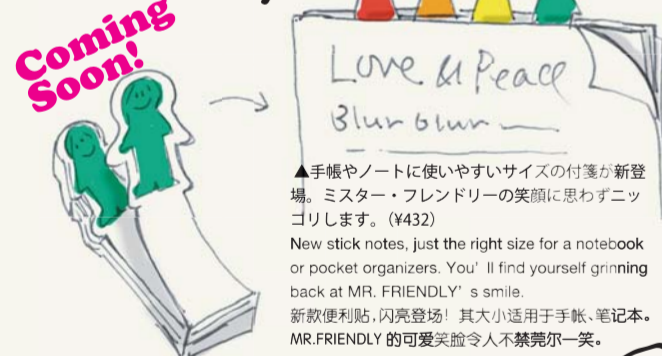 Coming
Soon!
Love & Peace
Blur blur
▲手帳やノートに使いやすいサイズの付箋が新登
場。ミスター・フレンドリーの笑顔に思わずニッ
コリします。(¥432)
New stick notes, just the right size for a notebook
or pocket organizers. You'll find yourself grinning
back at MR. FRIENDLY's smile.
新款便利贴,闪亮登场!其大小适用于手帐、笔记本。
MR.FRIENDLY 的可爱笑脸令人不禁莞尔一笑。